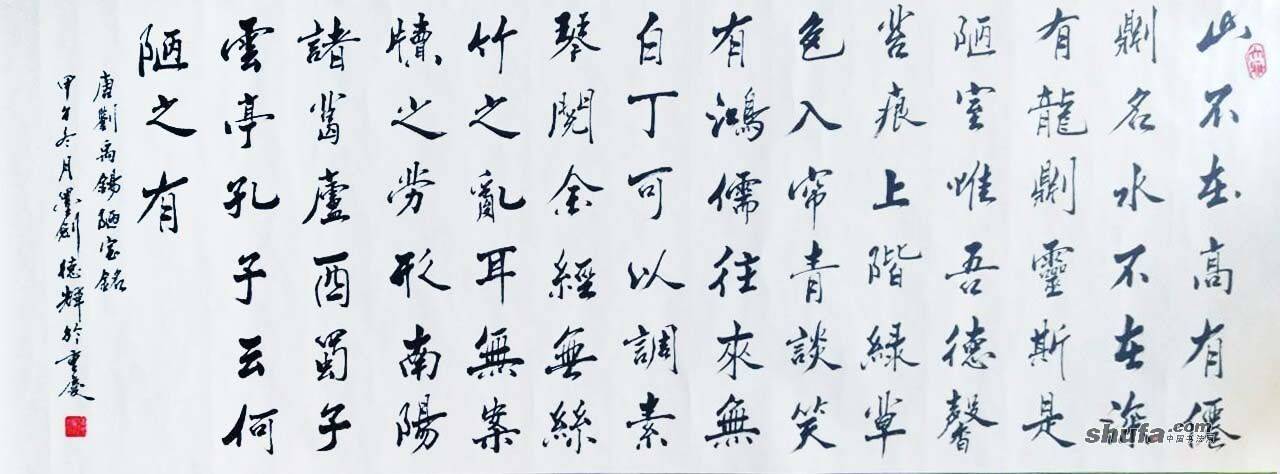 山不在高有僊
則名水不在深
有龍則靈斯是
陋室惟吾德馨
苔痕上階緑草
色入帘青談笑
有鴻儒往來無
白丁可以調素
琴閱金經無絲
竹之亂耳無案
牘之勞形南陽
諸葛廬西蜀子
雲亭孔子云何
陋之有
唐劉禹錫陋室銘
甲午冬月墨劍德輝於重慶
shufa.com
中国书法网